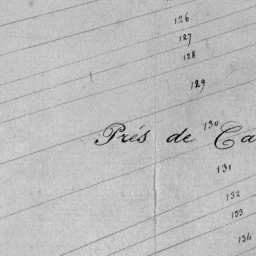 126
127
128
129
130
Prés de Ca
131
132
133
134